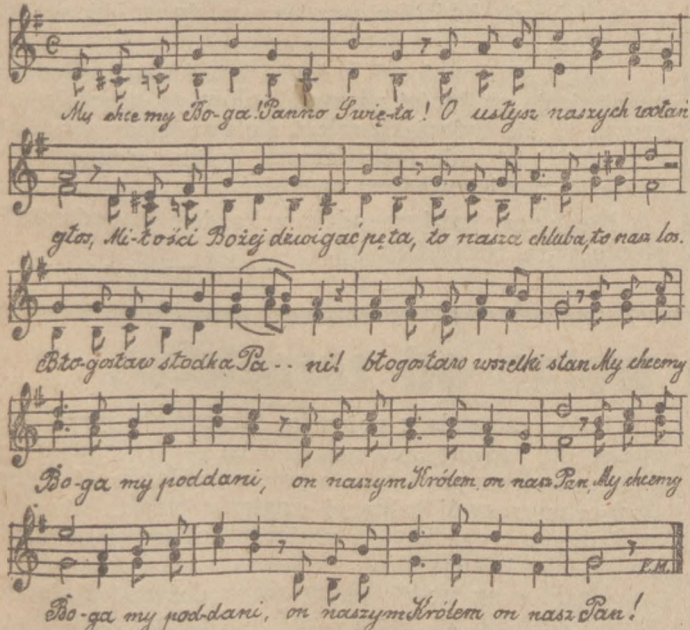 My chcemy Bo-ga! Panno Swię-ta! O usłysz naszych wołań
głos, Mi-łości Bożej dźwigać pęta, to nasza chluba, to nasz los.
Bło-gosław słodka Pa-- ni! błogosław wszelki stan My chcemy
Bo-ga my poddani, on naszym Królem on nasz Pan, My chcemy
F.M.
Bo-ga my pod-dani, on naszym Królem on nasz Pan!